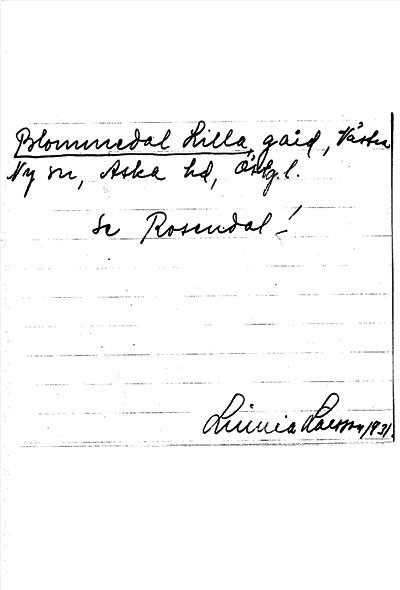 Blommedal Lilla, gård, Västra
Ny sn, Aska hd, Östg.l.
Se Rosendal!
Linnea Larsson 1931.